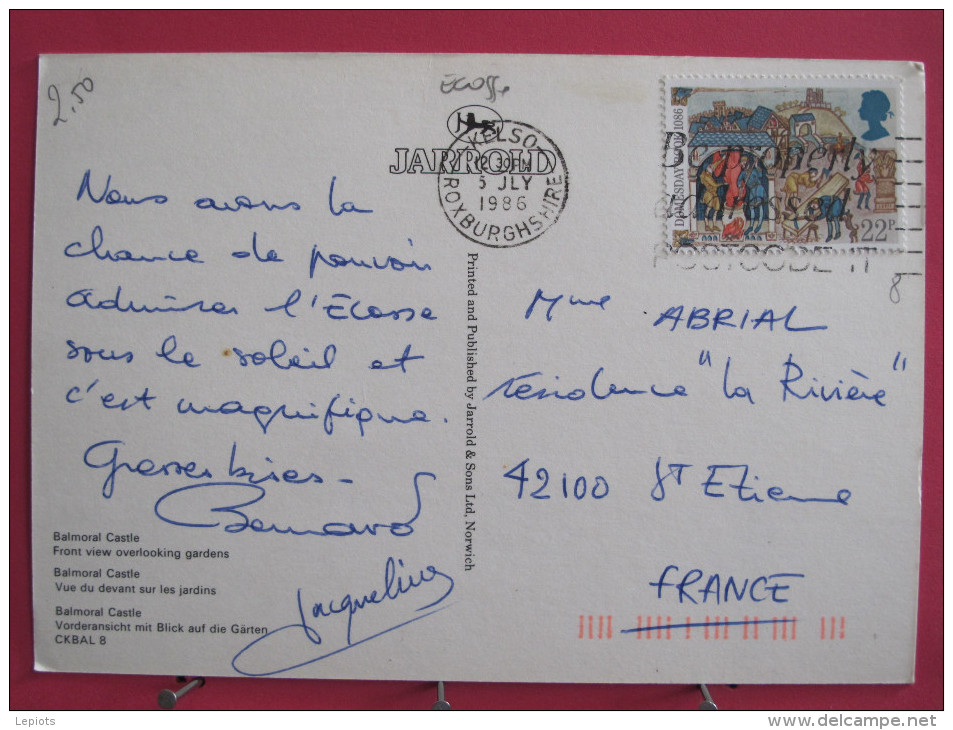 2.50
Ecosse
JARROLD
KELSO
12 30PM
5 JLY
1986
ROXBURGHSHIRE
DOMESDAY BOOK 1086
22P
Be Properly
Addressed
POSTCODE IT
8
Nous avons la
chance de pouvoir
admirer l'Ecosse
sous le soleil et
c'est magnifique.
Grosses bises -
Bernard
Jacqueline
Balmoral Castle
Front view overlooking gardens
Balmoral Castle
Vue du devant sur les jardins
Balmoral Castle
Vorderansicht mit Blick auf die Gärten
CKBAL 8
Printed and Published by Jarrold & Sons Ltd, Norwich
Mme ABRIAL
résidence "La Rivière"
42100 St Etienne
FRANCE
Lepiots
delcampe.net